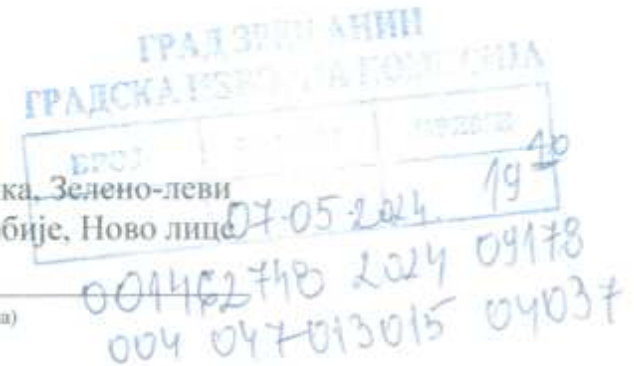 ГРАД ЗРЕЊАНИН
ГРАДСКА ИЗБОРНА КОМИСИЈА
БРОЈ
19 10
ка, Зелено-леви
бије, Ново лице
07.05.2024.
001462748 2024 09178
а)
004 047-013015 04037